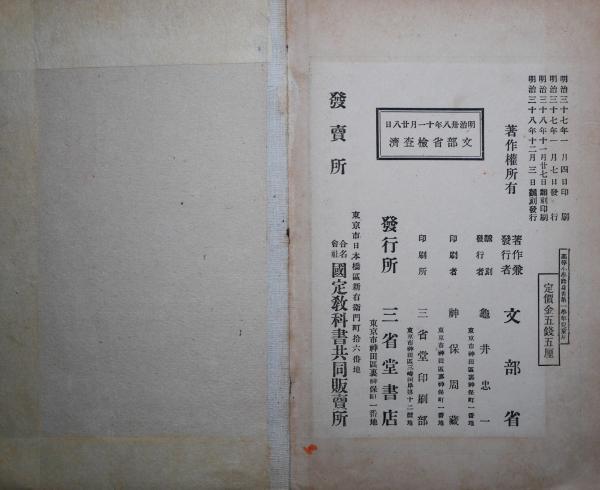 明治三十七年一月四日印刷
明治三十七年一月七日發行
明治三十八年十一月廿七日飜刻印刷
明治三十八年十二月三日飜刻發行
定價金五錢五厘
著作權所有
明治卅八年十一月廿八日
文部省檢查濟
著作兼發行者 文部省
飜刻發行者 龜井忠一
東京市神田區裏神保町一番地
印刷者 神保周藏
東京市神田區裏神保町一番地
印刷所 三省堂印刷部
發行所 三省堂書店
東京市神田區裏神保町一番地
發賣所
東京市日本橋區新右衞門町拾六番地
合名會社 國定敎科書共同販賣所